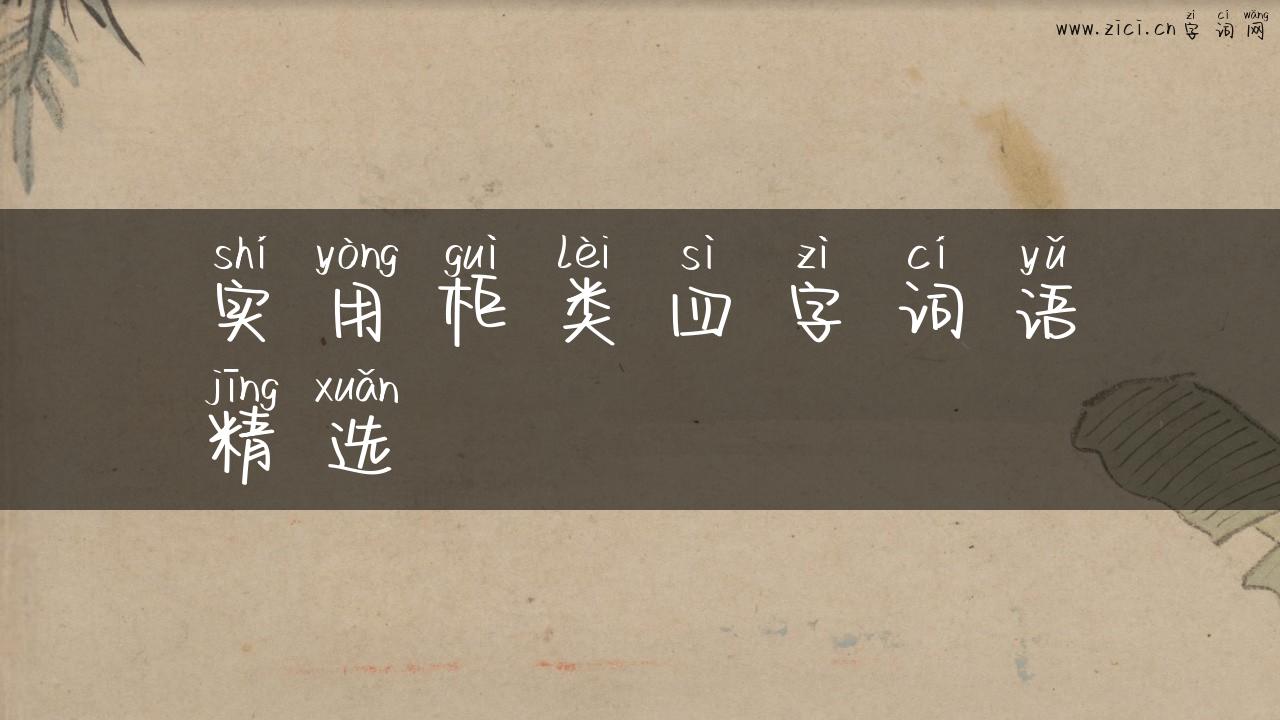 zì cí wǎng
www.zici.cn 字词网
shí yòng guì lèi sì zì cí yǔ
实用柜类四字词语
jīng xuǎn
精选